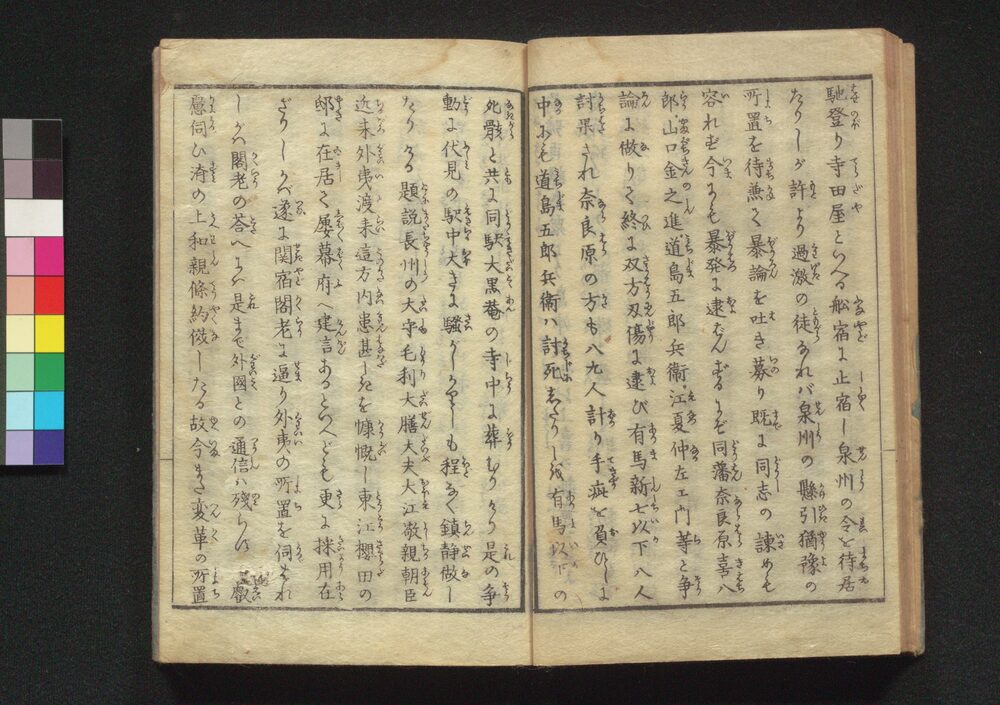 馳登り寺田屋といへる舩宿に止宿し泉州の令を待居
たりしが許より過激の徒なれバ泉州の懸引猶豫の
所置を待兼て暴論を吐き募り既に同志の諫めも
容れず今にも暴発に逮ばんずるにぞ同藩奈良原喜八
郎山口金之進道島五郎兵衛江夏仲左エ門等と争
論に做りて終に双方刃傷に逮び有馬新七以下八人
討果され奈良原の方も八九人計り手疵を負ひし
中にも道島五郎兵衛ハ討死したりしを有馬以下の
死骸と共に同駅大黒菴の寺中に葬むりけり是の争
動に伏見の駅中大きに騒がしかりしも程なく鎮静做し
たりける題説長州の大守毛利大膳大夫大江敬親朝臣
近来外夷渡来這方内患甚しきを慷慨し東江櫻田の
邸に在居て屡幕府へ建言あるといへども更に採用在
ざりしかば遂に関宿閣老に逼り外夷の所置を伺はれ
しかバ閣老の答へには是まで外國との通信ハ残らず 叡
慮伺ひ済の上和親條約做したる故今また変革の所置